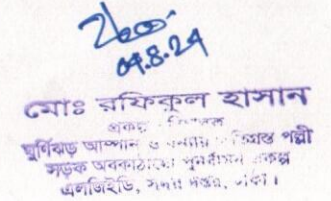 04.8.24
মোঃ রফিকুল হাসান
প্রকল্প
ঘূর্ণিঝড় আম্পান ও বন্যায় পল্লী
সড়ক অবকাঠামো পুনর্বাসন প্রকল্প
এলজিইডি, সদর দপ্তর, ঢাকা।